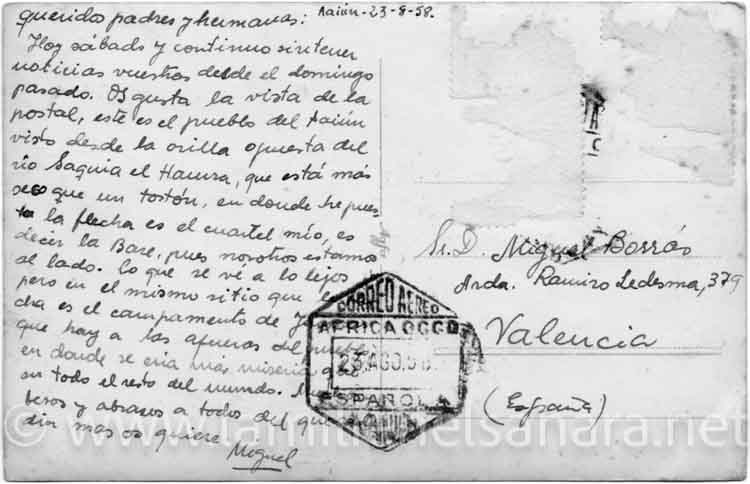 queridos padres y hermanas: Aaiún-23-8-58.
Hoy sábado y continuo sin tener
noticias vuestras desde el domingo
pasado. Os gusta la vista de la
postal, este es el pueblo del Aaiún
visto desde la orilla opuesta del
río Saguia el Hamra, que está más
seco que un tostón, en donde he pues
to la flecha es el cuartel mío, es
decir la Base, pues nosotros estamos
al lado. Lo que se vé a lo lejos
pero en el mismo sitio que
cha es el campamento de
que hay a las afueras del pueblo
en donde se cria más miseria que
en todo el resto del mundo.
besos y abrazos a todos del que
dia mas os quiere
Miguel
Sr. D. Miguel Borrás
Avda. Ramiro Ledesma, 379
Valencia
(España)
CORREO AEREO
AFRICA OCCD
23 AGO.58
ESPAÑOLA
AAIUN